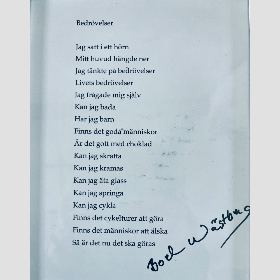 Bedrövelser
Jag satt i ett hörn
Mitt huvud hängde ner
Jag tänkte på bedrövelser
Livets bedrövelser
Jag frågade mig själv
Kan jag bada
Har jag barn
Finns det goda människor
Är det gott med choklad
Kan jag skratta
Kan jag kramas
Kan jag äta glass
Kan jag springa
Kan jag cykla
Finns det cykelturer att göra
Finns det människor att älska
Så är det nu det ska göras
Boel Wästberg